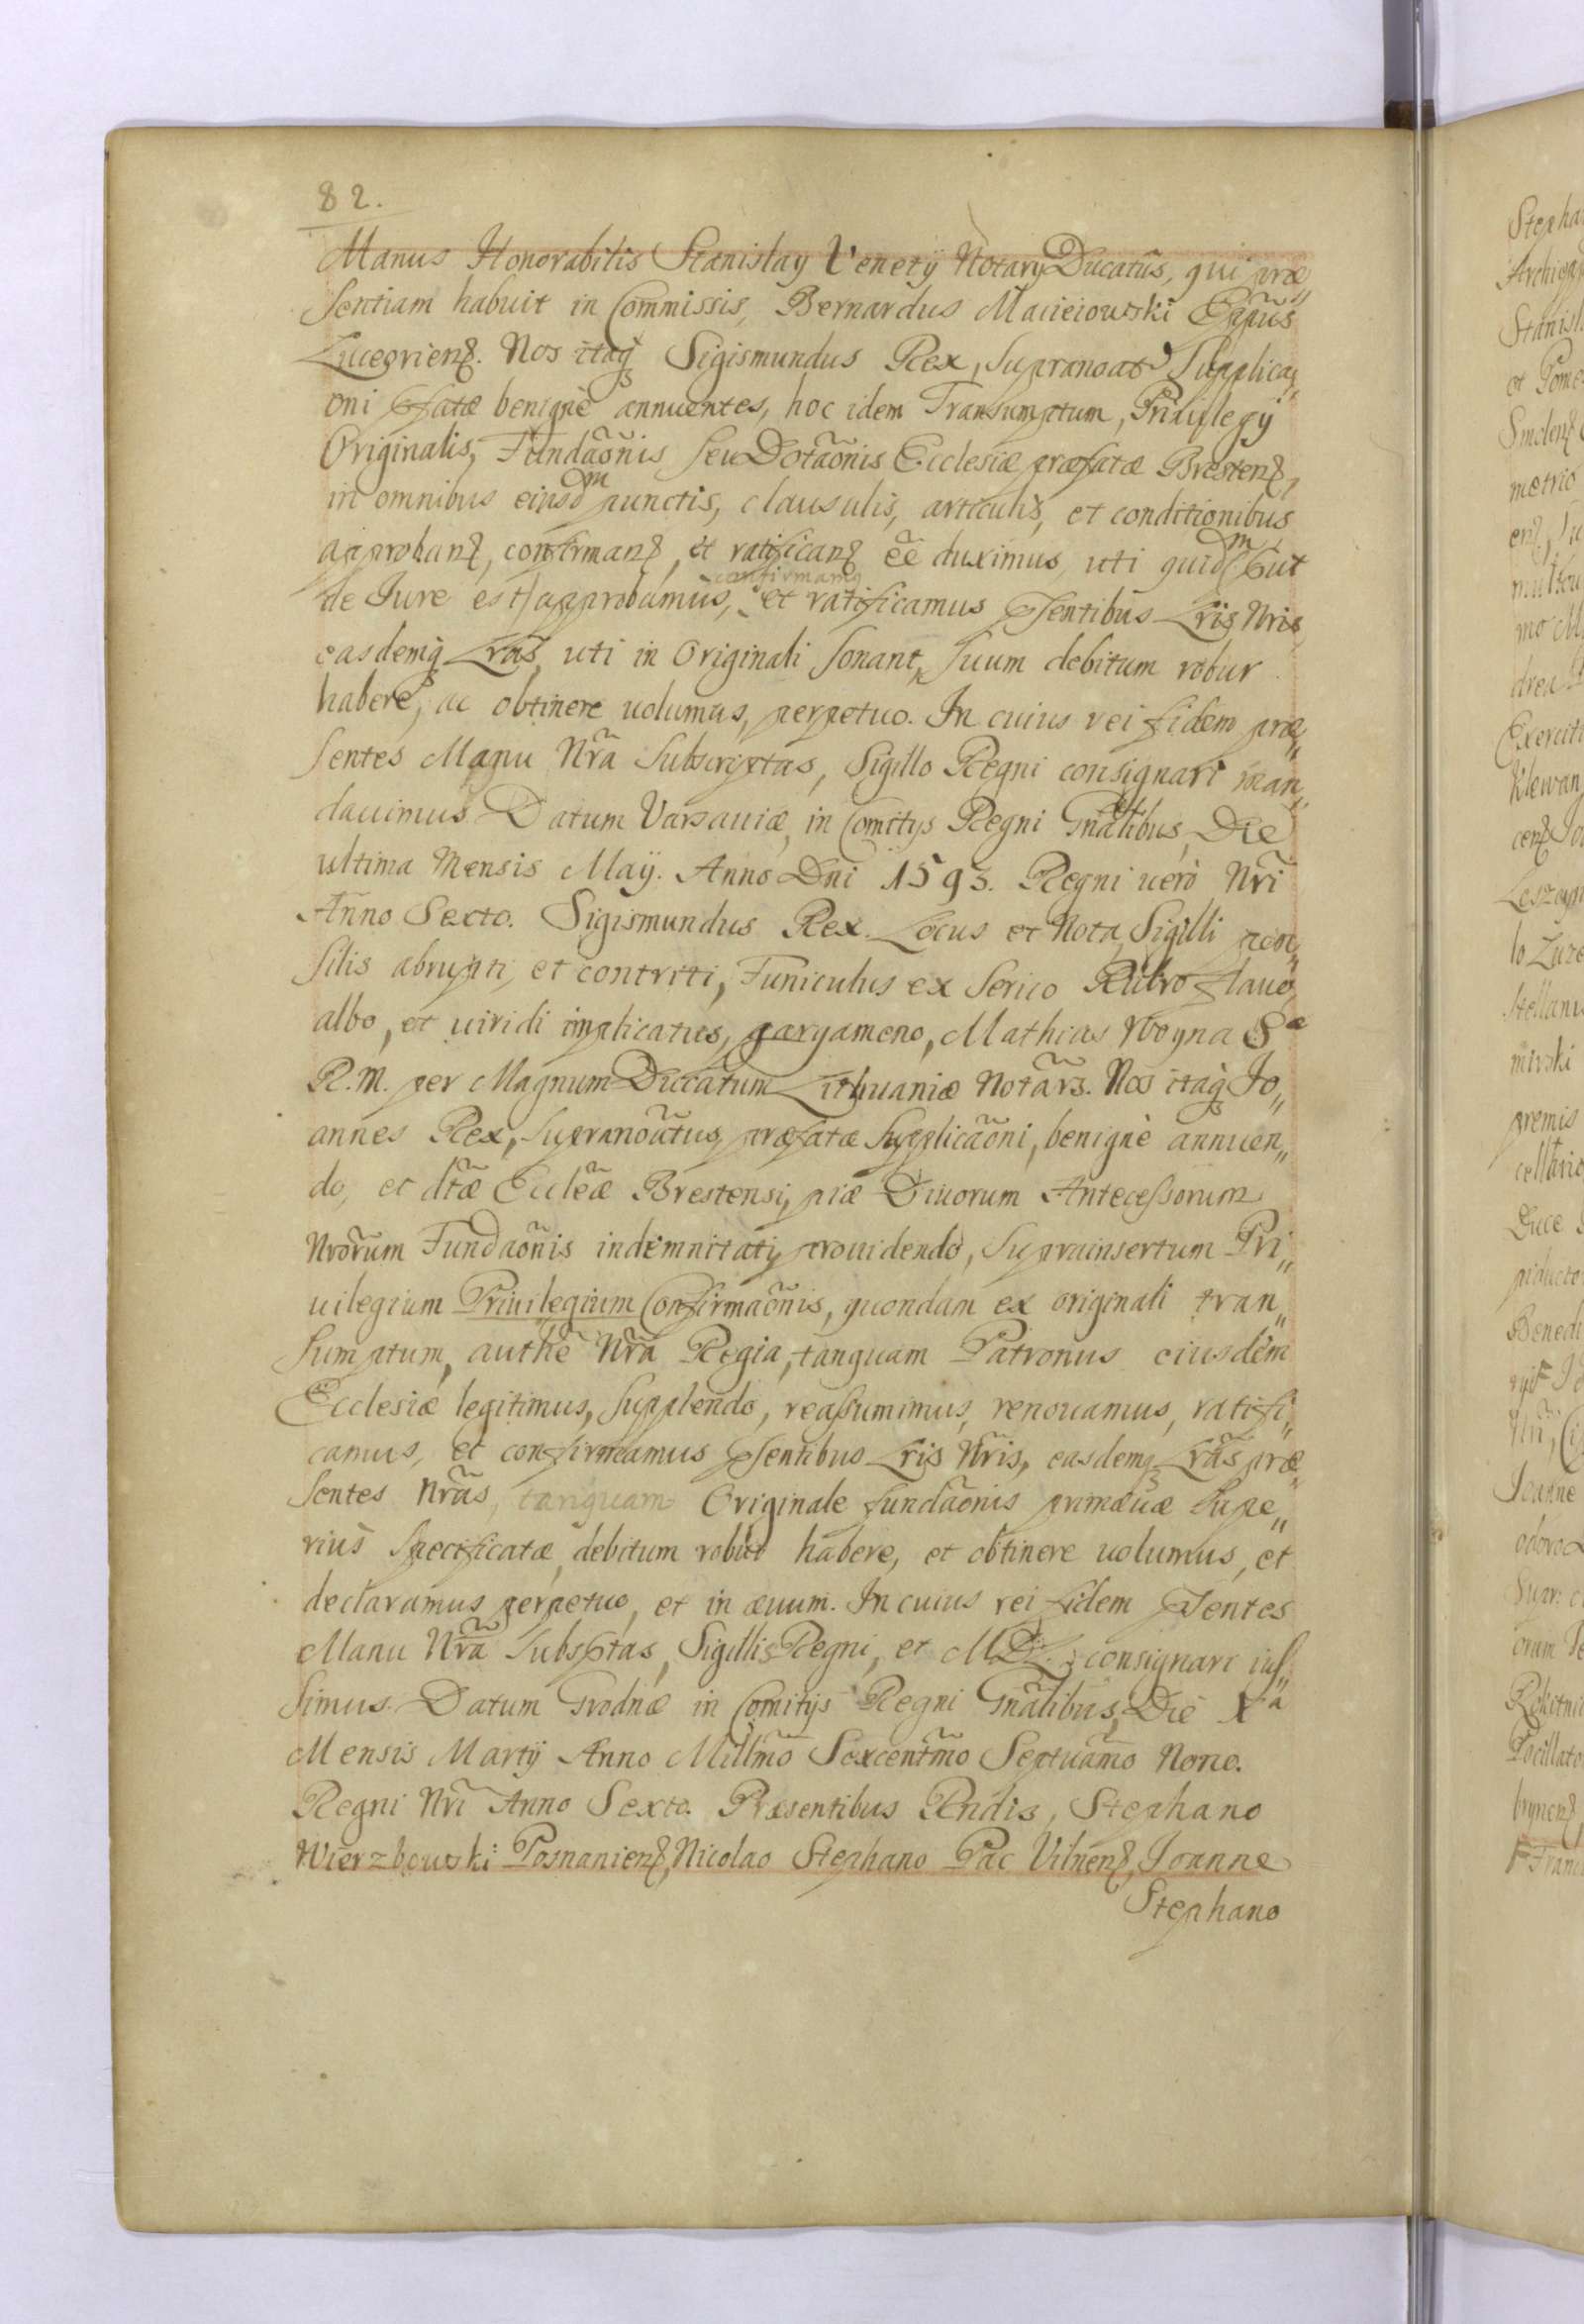 82.
Manus Honorabilis Stanislaij Venetÿ Notarÿ Ducatus, qui præ„
sentiam habuit in Commissis, Bernardus Macieiowski Epũs
Luceorienß. Nos itaq Sigismundus Rex, supranoat9 Supplica„
oni Pfatæ benignè annuentes, hoc idem Transumptum, Priuilegÿ
Originalis, Fundãonis seu Dotãonis Ecclesiæ præfatæ Brestenß,
in omnibus eiusdm punctis, clausulis, articulis, et conditionibus
approbanß, confirmanß, et ratificanß eẽ duximus, uti quidm (ut
de Iure est) approbamus, confirmamq et ratificamus Psentibus Lris Nris,
easdemq Lras, uti in Originali sonant, suum debitum robur
habere, ac obtinere uolumus, perpetuo. In cuius rei fidem præ„
sentes Manu Nrã Subscriptas, Sigillo Regni consignari man„
dauimus. Datum Varsauiæ, in Comitijs Regni Gnãlibus, Die
ultima Mensis Maÿ. Anno Dni 1593. Regni uerò Nrĩ
Anno Sexto. Sigismundus Rex. Locus et Nota Sigilli pen„
silis abrupti, et contriti, Funiculus ex Serico Rubro flauo,
albo, et uiridi implicatus, pargameno, Mathias Woyna Sæ
R. M. per Magnum Ducatum Lithuaniæ Notãrs. Nos itaq Jo„
annes Rex, supranoũtus, præfatæ Supplicãoni, benignè annuen„
do, et dtæ Eccleæ Brestensi, piæ Diuorum Antecessorum
Nrõrum Fundãonis indemnitati, prouidendo, suprainsertum Pri„
uilegium Priuilegium Confirmãonis, quondam ex originali tran„
sumptum, authẽ Nrã Regia, tanquam Patronus eiusdem
Ecclesiæ legitimus, supplendo, reassumimus, renouamus, ratifi„
camus, et confirmamus Psentibus Lris Nris, easdemq Lrãs præ„
sentes Nrãs, tanquam Originale fundãonis primæuæ supe„
rius specificatæ, debitum robur habere, et obtinere uolumus, et
declaramus perpetuo, et in æuum. In cuius rei fidem Psentes
Manu Nrã Subsptas, Sigillis Regni, et M.D.L. consignari ius„
simus. Datum Grodnæ in Comitijs Regni Gnãlibus, Die Xa
Mensis Martÿ Anno Millmõ Sexcentmõ Septuãmo Nono.
Regni Nrĩ Anno Sexto. Præsentibus Rndis, Stephano
Wierzbowski Posnanienß, Nicolao Stephano Pac Vilnenß, Joanne
Stephano